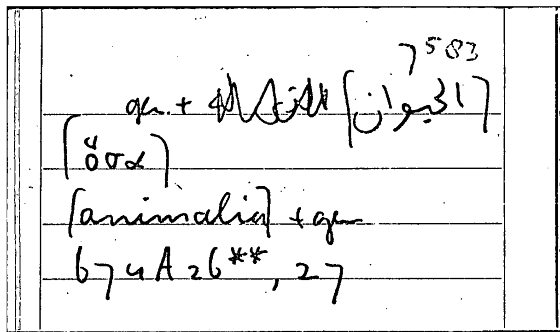 7583
[الحيوان] + gen.
[ὅσα]
[animalia] + gen
674A26**, 27